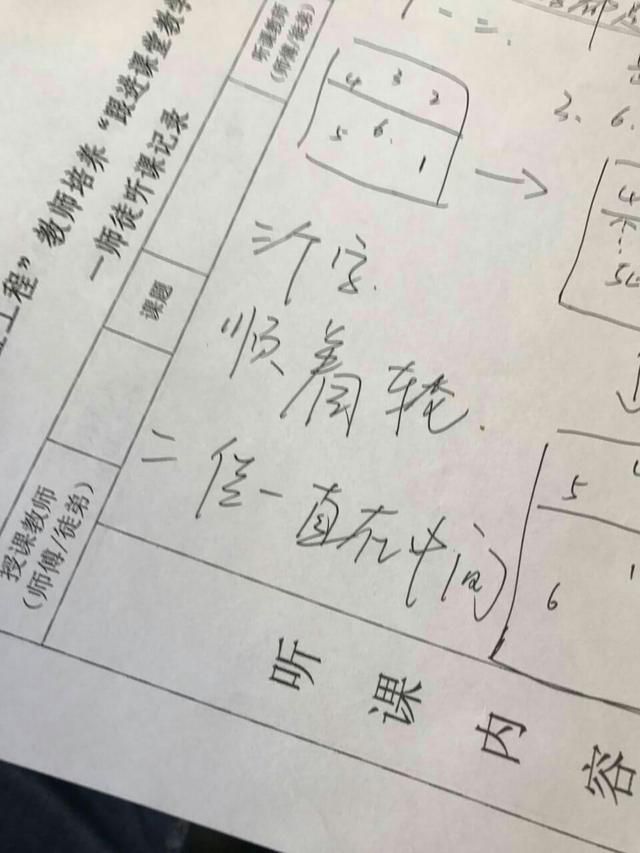 工程”教师培养“跟进课堂教学
—师徒听课记录
授课教师
(师傅//徒弟)
课题
听课教师
(师傅/徒弟)
听课内容
一 二.
4 3 2
5 6. 1
→
2. 6.
4
三个字.
顺着转.
二 倍一直在中间
5
6 1